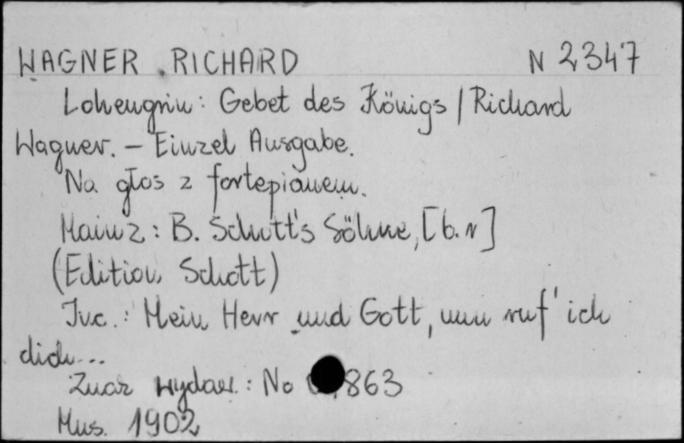 WAGNER RICHARD N 2347
Lohengrin: Gebet des Königs / Richard
Wagner. – Einzel Ausgabe.
Na głos z fortepianem.
Mainz: B. Schott's Söhne, [b.r]
(Edition Schott)
Inc.: Mein Herr und Gott, nun ruf' ich
dich...
Znak wydaw.: No 863
Mus. 1902